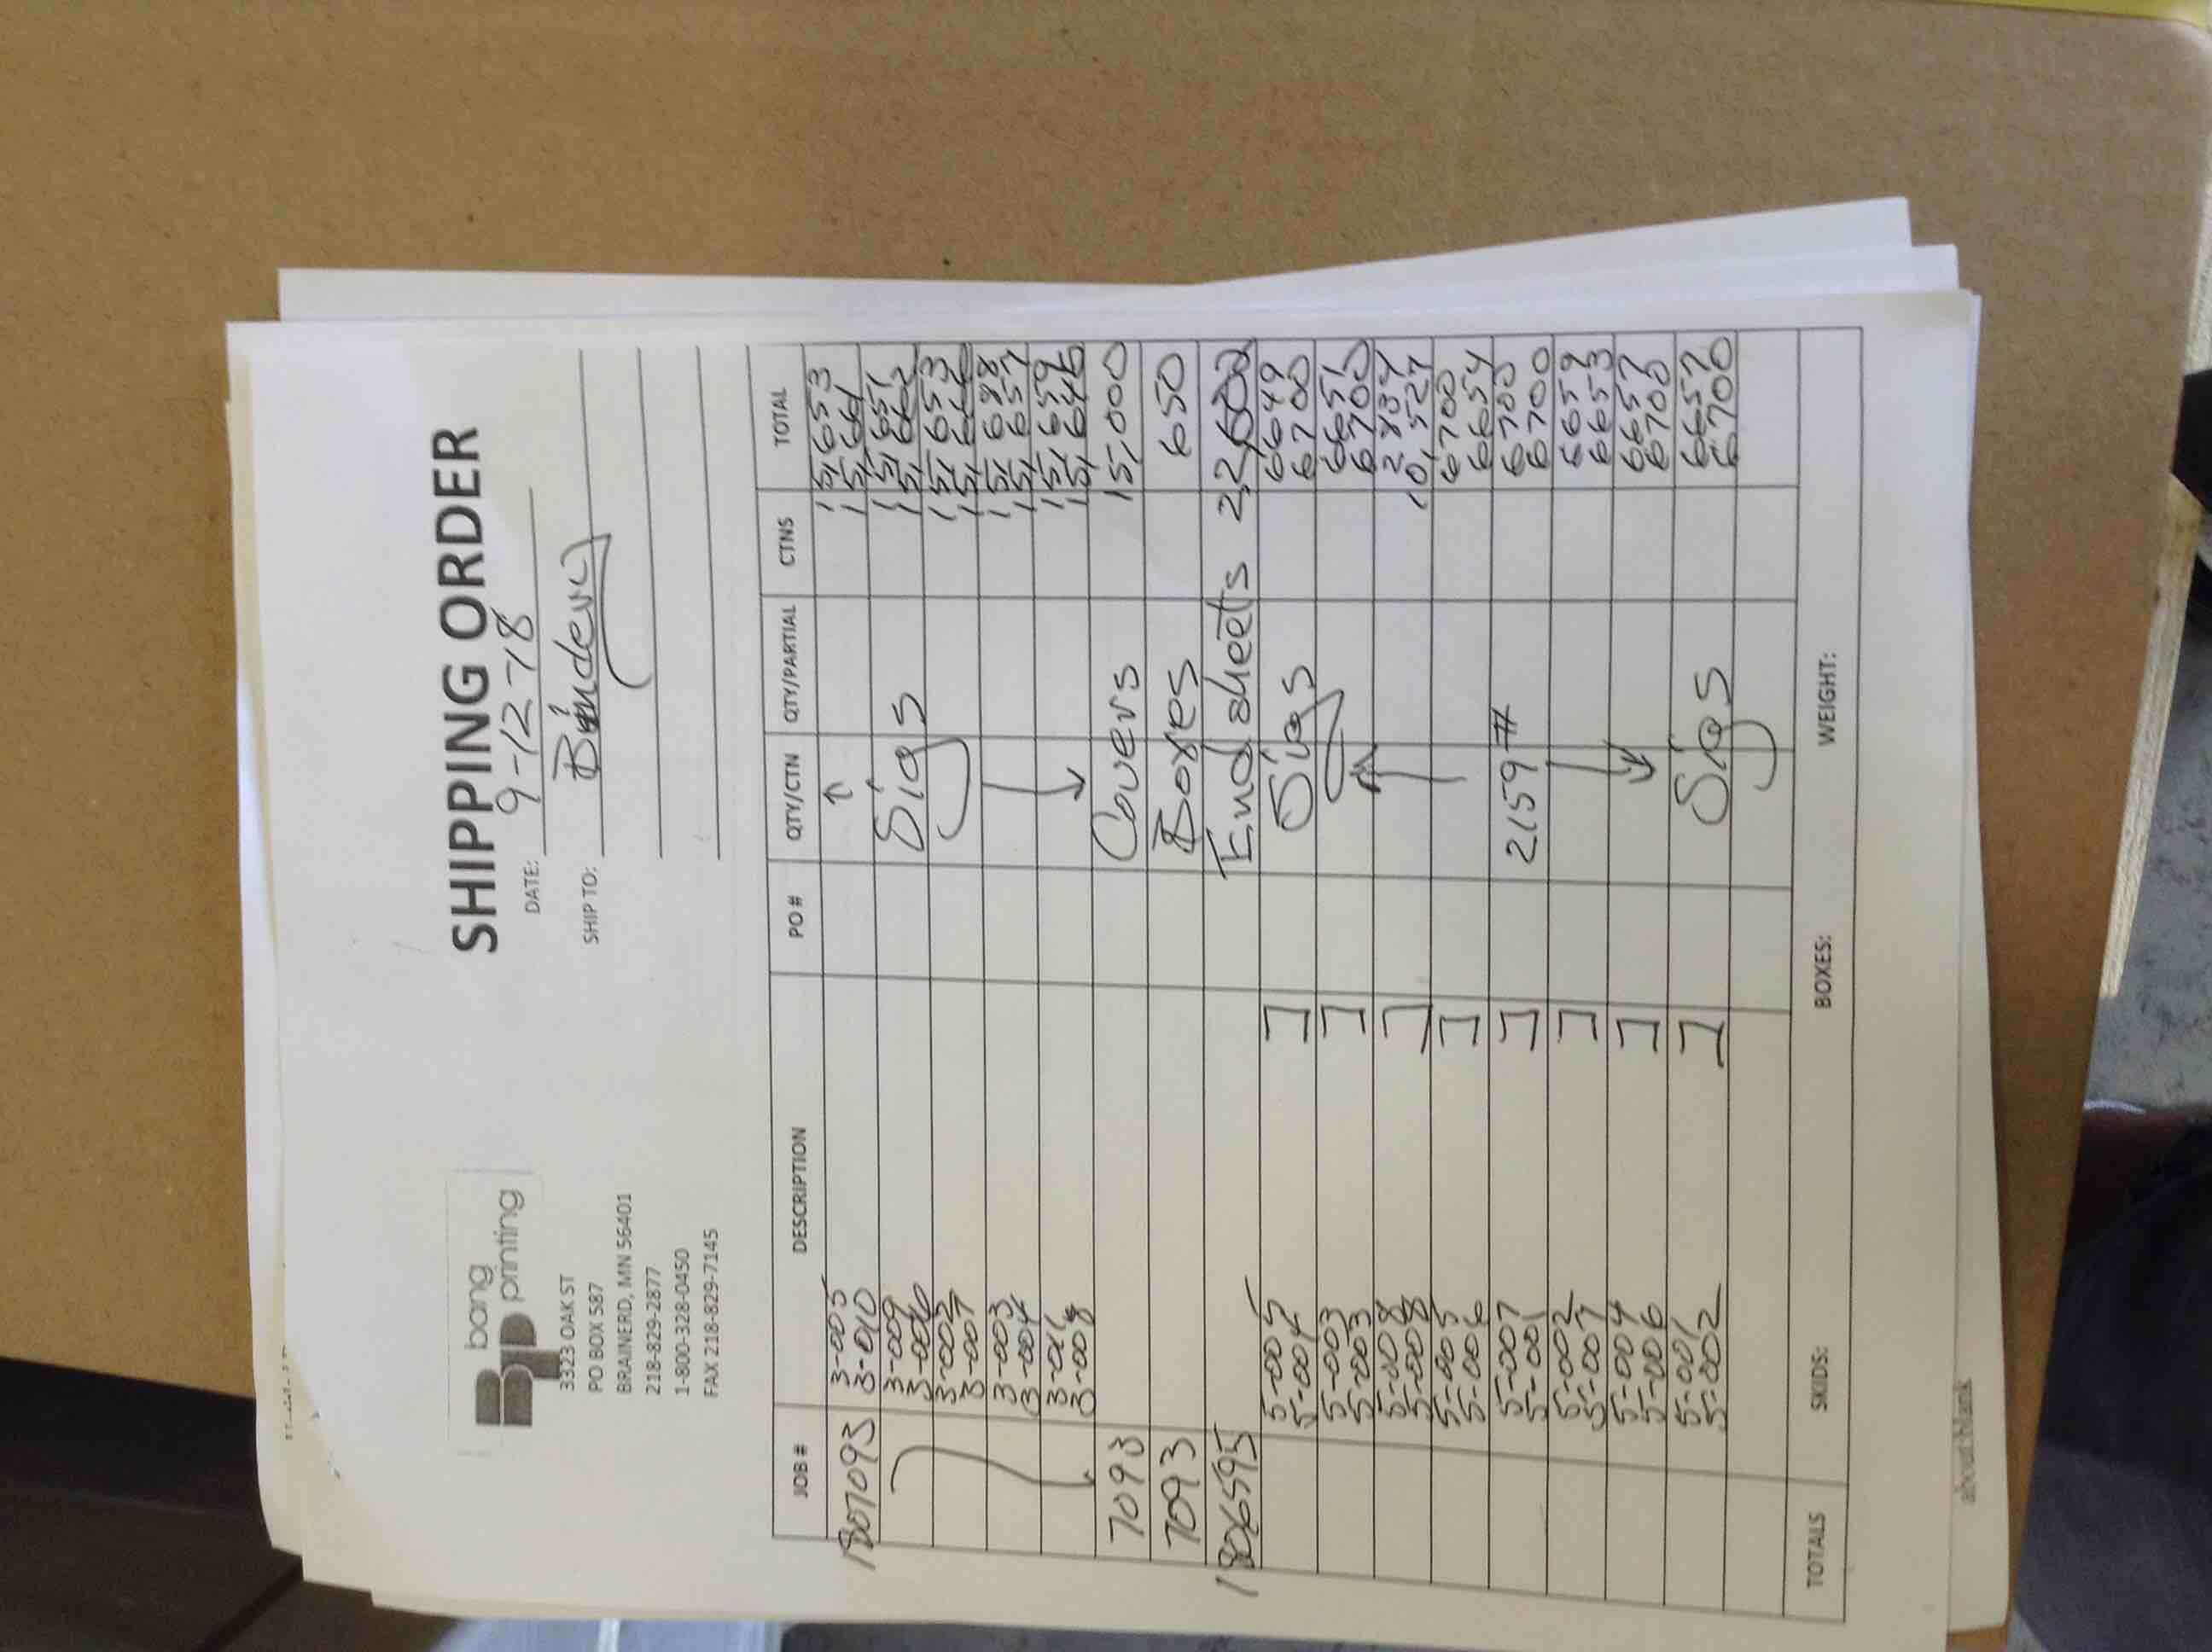 bang
printing
3323 OAK ST
PO BOX 587
BRAINERD, MN 56401
218-829-2877
1-800-328-0450
FAX 218-829-7145
SHIPPING ORDER
DATE: 9-12-18
SHIP TO: Bindery
JOB # DESCRIPTION PO # QTY/CTN QTY/PARTIAL CTNS TOTAL
1807093 3-005 15,653
3-010 15,661
3-009 Sigs 15,651
3-006
3-002 15,653
3-007
3-003 15,698
3-004 15,657
3-011 15,659
3-008 15,645
7093 Covers 15,000
7093 Boxes 650
1806595 End sheets
5-005 Sigs 6649
5-004 6700
5-003 6651
5-003 6700
5-008 2834
5-008 10,527
5-005 6700
5-006 6654
5-007 2159# 6700
5-001 6700
5-002 6659
5-007 6653
5-004 6657
5-006 6700
5-001 Sigs 6657
5-002 6700
TOTALS SKIDS: BOXES: WEIGHT:
about:blank